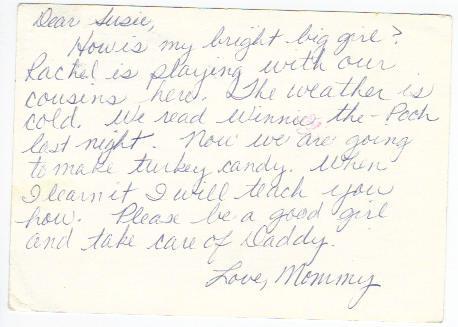 Dear Susie,
How is my bright big girl?
Rachel is playing with our
cousins here. The weather is
cold. We read Winnie-the-Pooh
last night. Now we are going
to make turkey candy. When
I learn it I will teach you
how. Please be a good girl
and take care of Daddy.
Love, Mommy